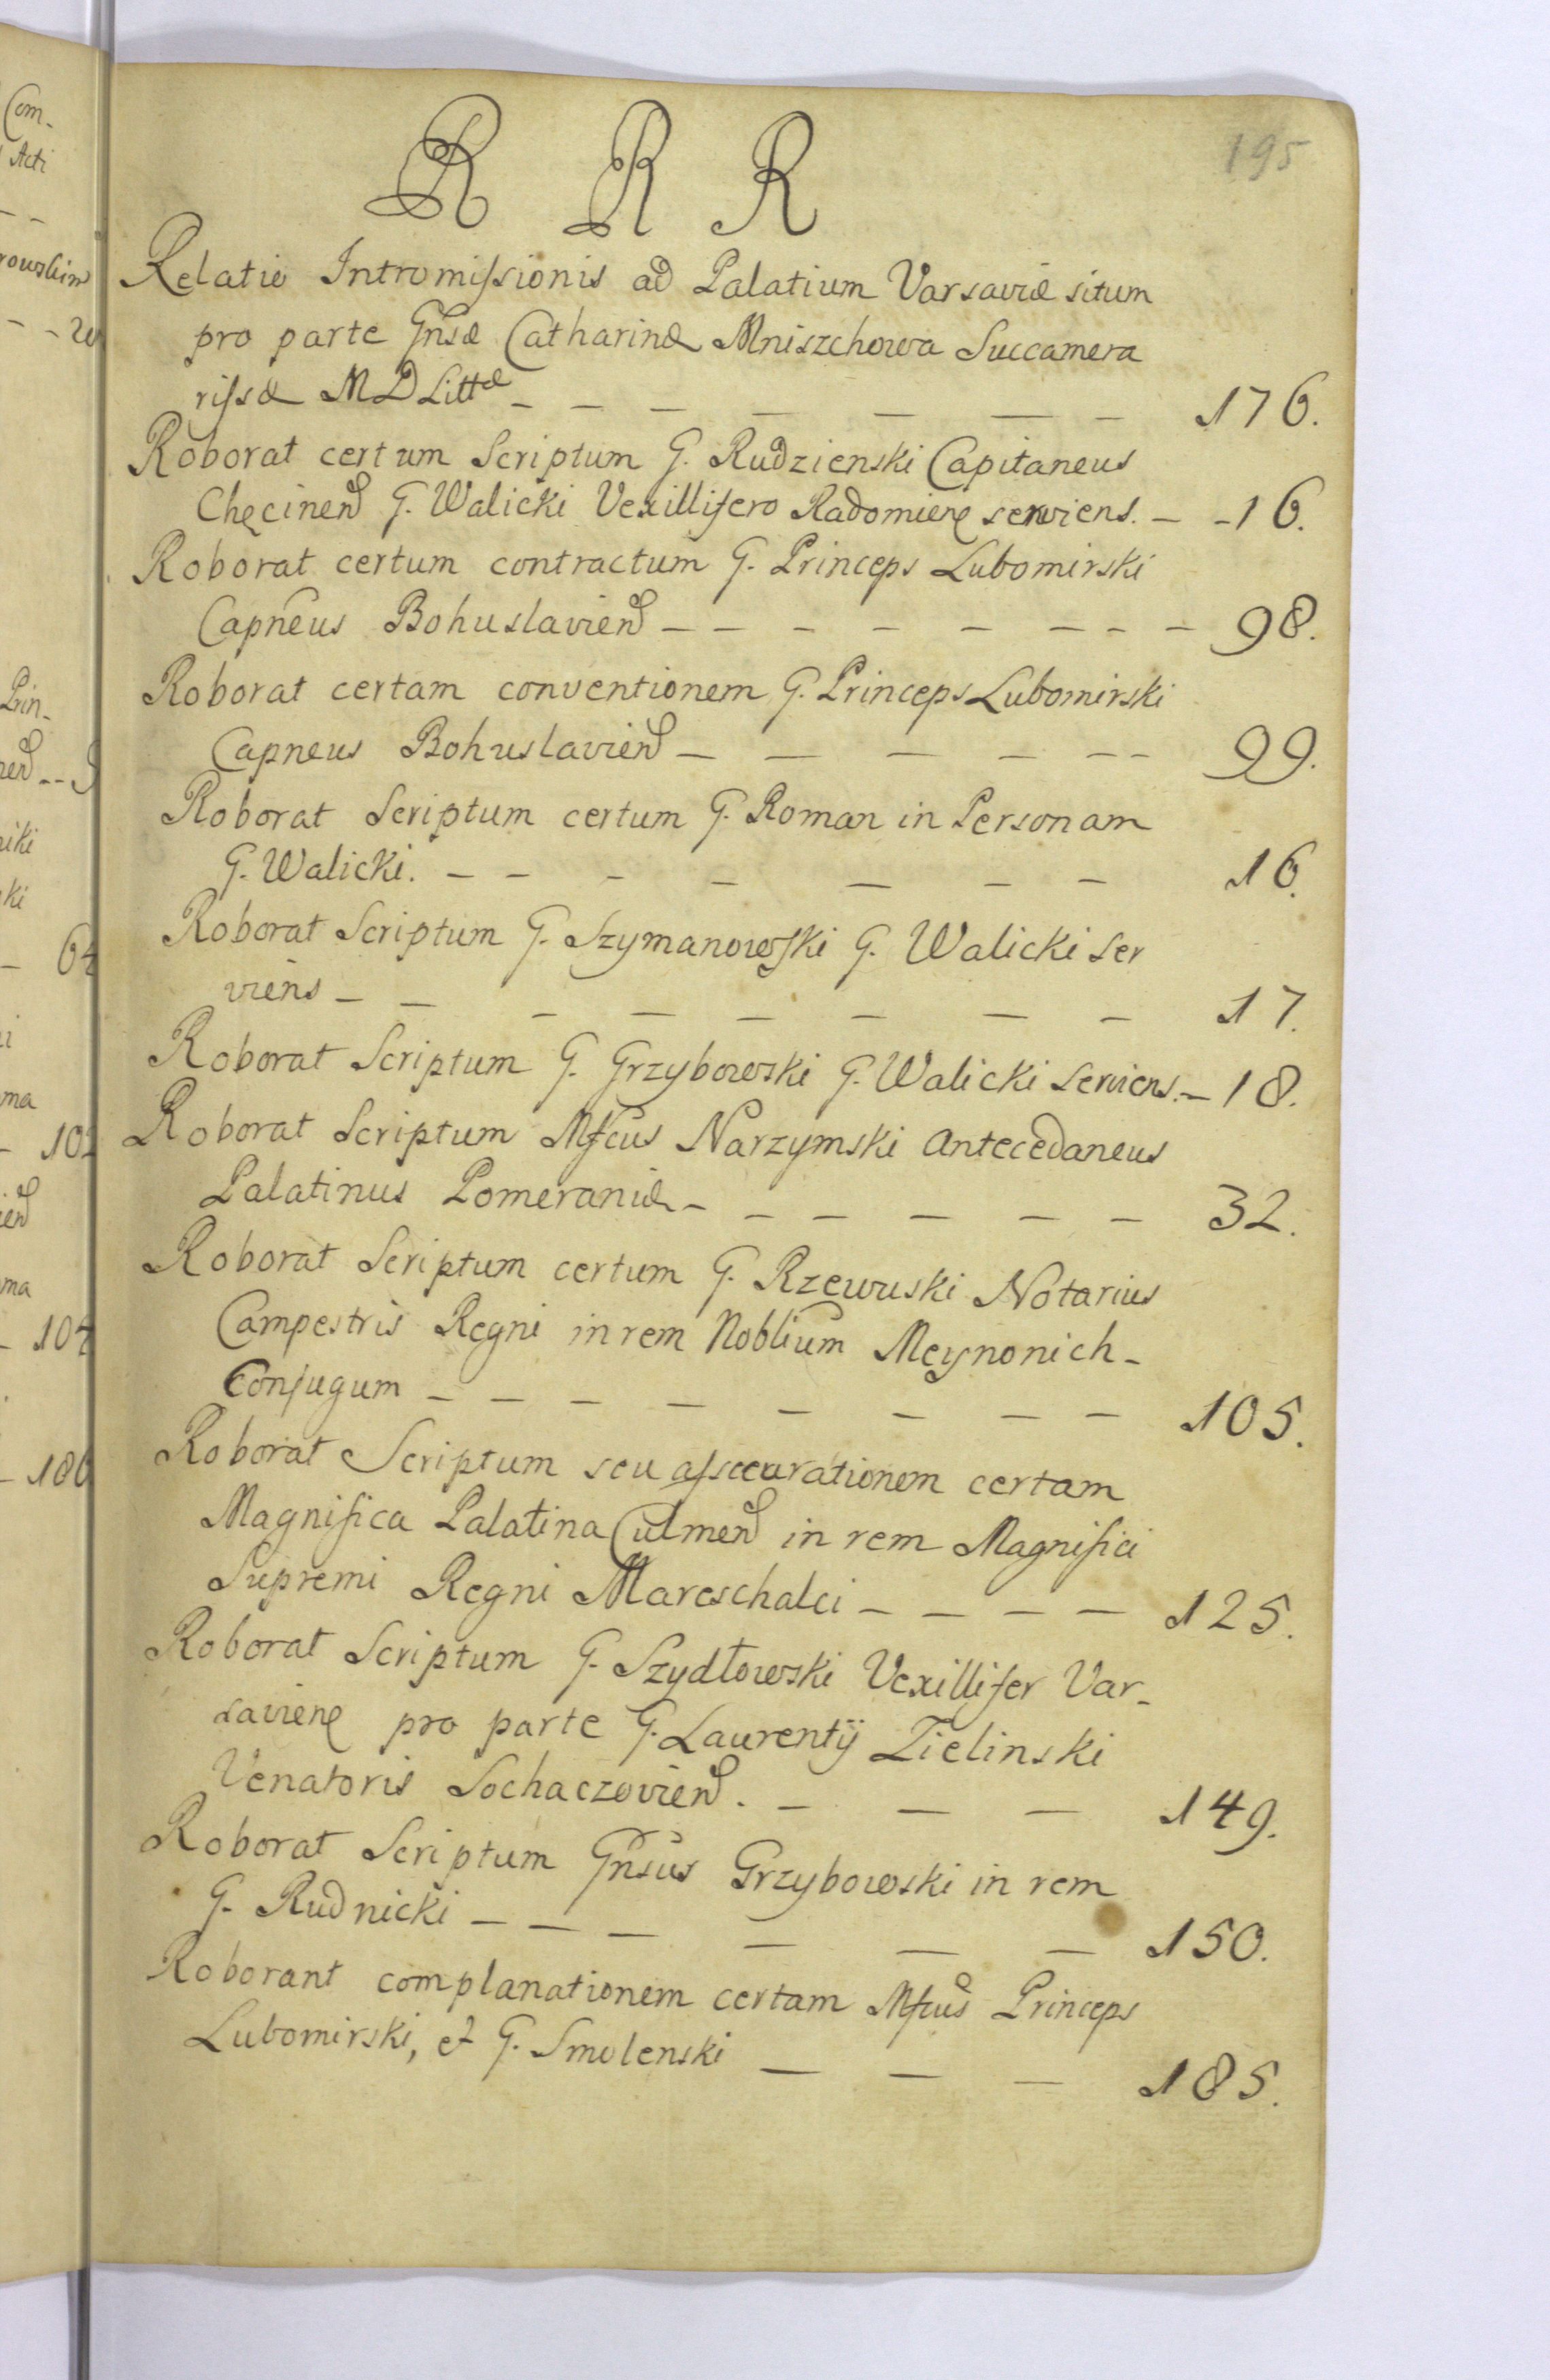 195
R R R
Relatio Intromissionis ad Palatium Varsaviæ situm
pro parte Gnsæ Catharinæ Mniszchowa Succamera
rissæ M D Littæ _ _ _ _ _ _ _ 176.
Roborat certum Scriptum G. Rudzienski Capitaneus
Chęcinen G. Walicki Vexillifero Radomien serviens. _ _ 16.
Roborat certum contractum G. Princeps Lubomirski
Capneus Bohuslavien _ _ _ _ _ _ _ _ 98.
Roborat certam conventionem G. Princeps Lubomirski
Capneus Bohuslavien _ _ _ _ _ _ 99.
Roborat Scriptum certum G. Roman in Personam
G. Walicki. _ _ _ _ _ _ _ 16.
Roborat Scriptum G. Szymanowski G. Walicki Ser
viens _ _ _ _ _ _ _ _ 17.
Roborat Scriptum G. Grzybowski G. Walicki Serviens. _ 18.
Roborat Scriptum Mfcus Narzymski Antecedaneus
Palatinus Pomeraniæ _ _ _ _ _ _ 32.
Roborat Scriptum certum G. Rzewuski Notarius
Campestris Regni in rem Noblium Meynonich _
Conjugum _ _ _ _ _ _ _ _ 105.
Roborat Scriptum seu assecurationem certam
Magnifica Palatina Culmen in rem Magnifici
Supremi Regni Mareschalci _ _ _ _ 125.
Roborat Scriptum G. Szydłowski Vexillifer Var_
savien pro parte G. Laurentÿ Zielinski
Venatoris Sochaczovien. _ _ _ 149.
Roborat Scriptum Gnsus Grzybowski in rem
G. Rudnicki _ _ _ _ _ _ 150.
Roborant complanationem certam Mfcus Princeps
Lubomirski, et G. Smolenski _ _ _ 185.